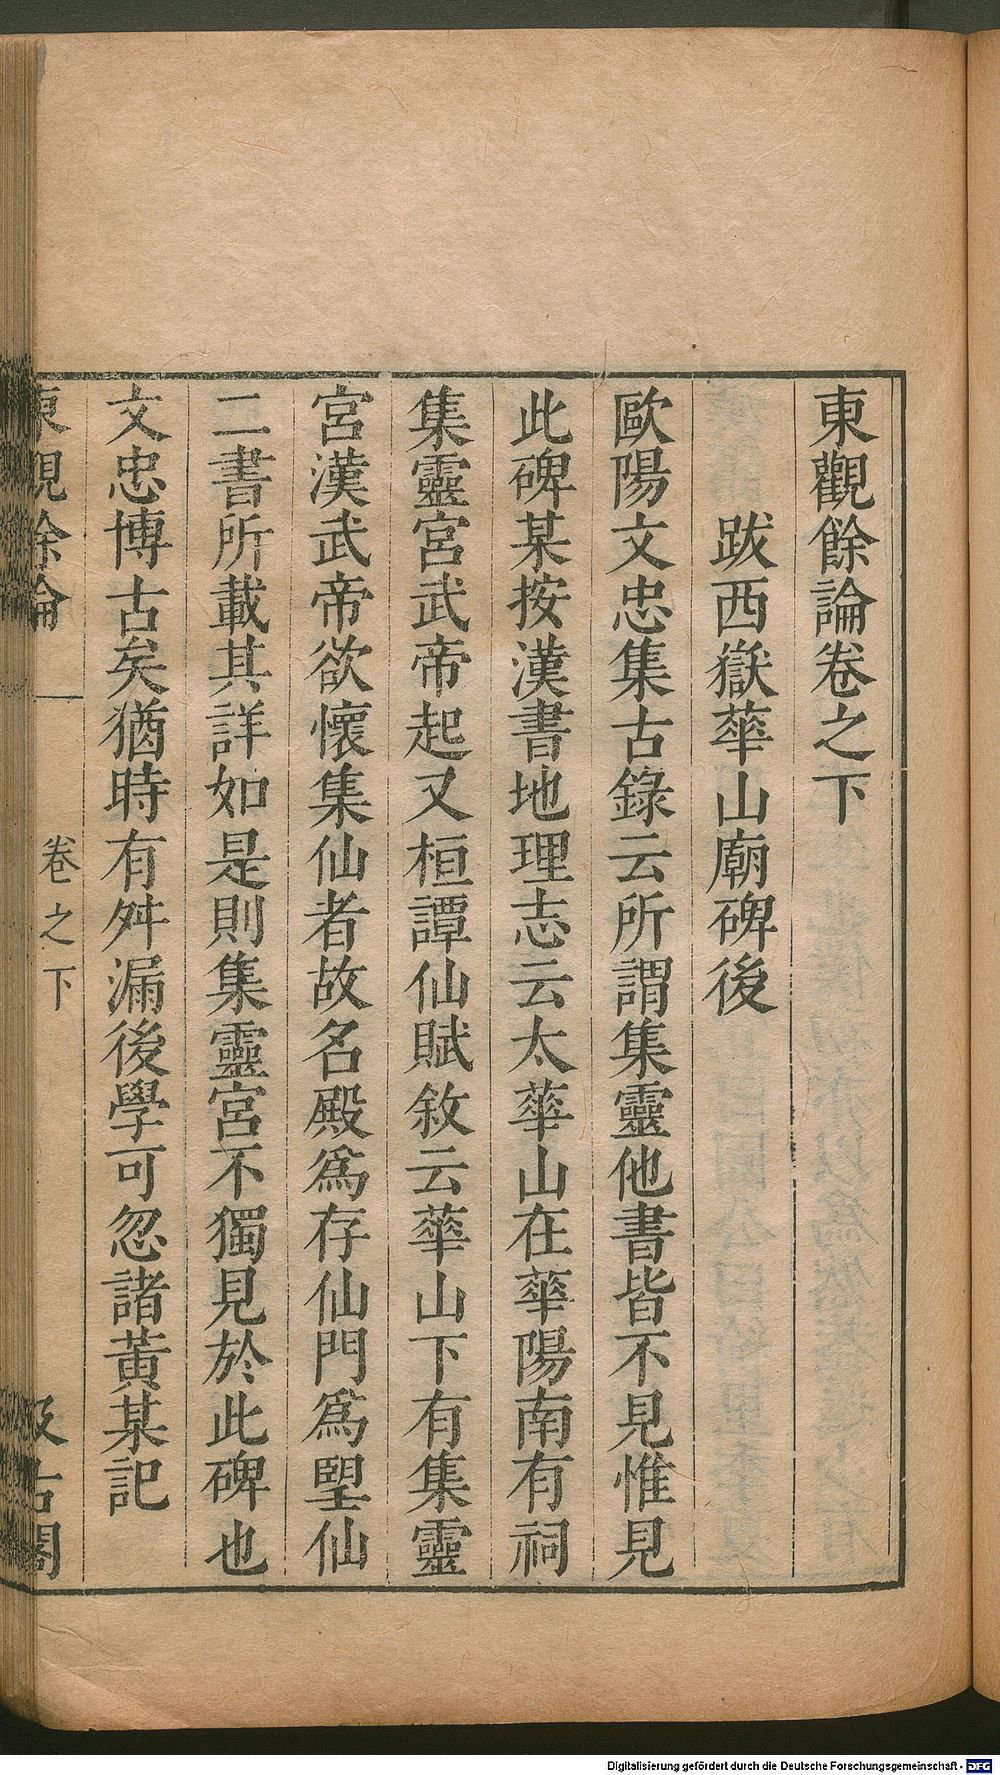 東觀餘論卷之下
跋西嶽華山廟碑後
歐陽文忠集古錄云所謂集靈他書皆不見惟見
此碑某按漢書地理志云太華山在華陽南有祠
集靈宮武帝起又桓譚仙賦敘云華山下有集靈
宮漢武帝欲懷集仙者故名殿爲存仙門爲朢仙
二書所載其詳如是則集靈宮不獨見於此碑也
文忠博古矣猶時有舛漏後學可忽諸黃某記
東觀餘論 卷之下 汲古閣
Digitalisierung gefördert durch die Deutsche Forschungsgemeinschaft - DFG